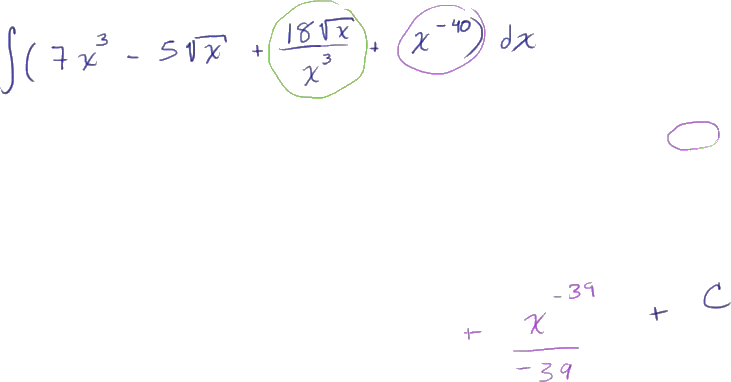 ∫(7x³ - 5√x + 18√x/x³ + x⁻⁴⁰) dx
+ x⁻³⁹/-39 + C